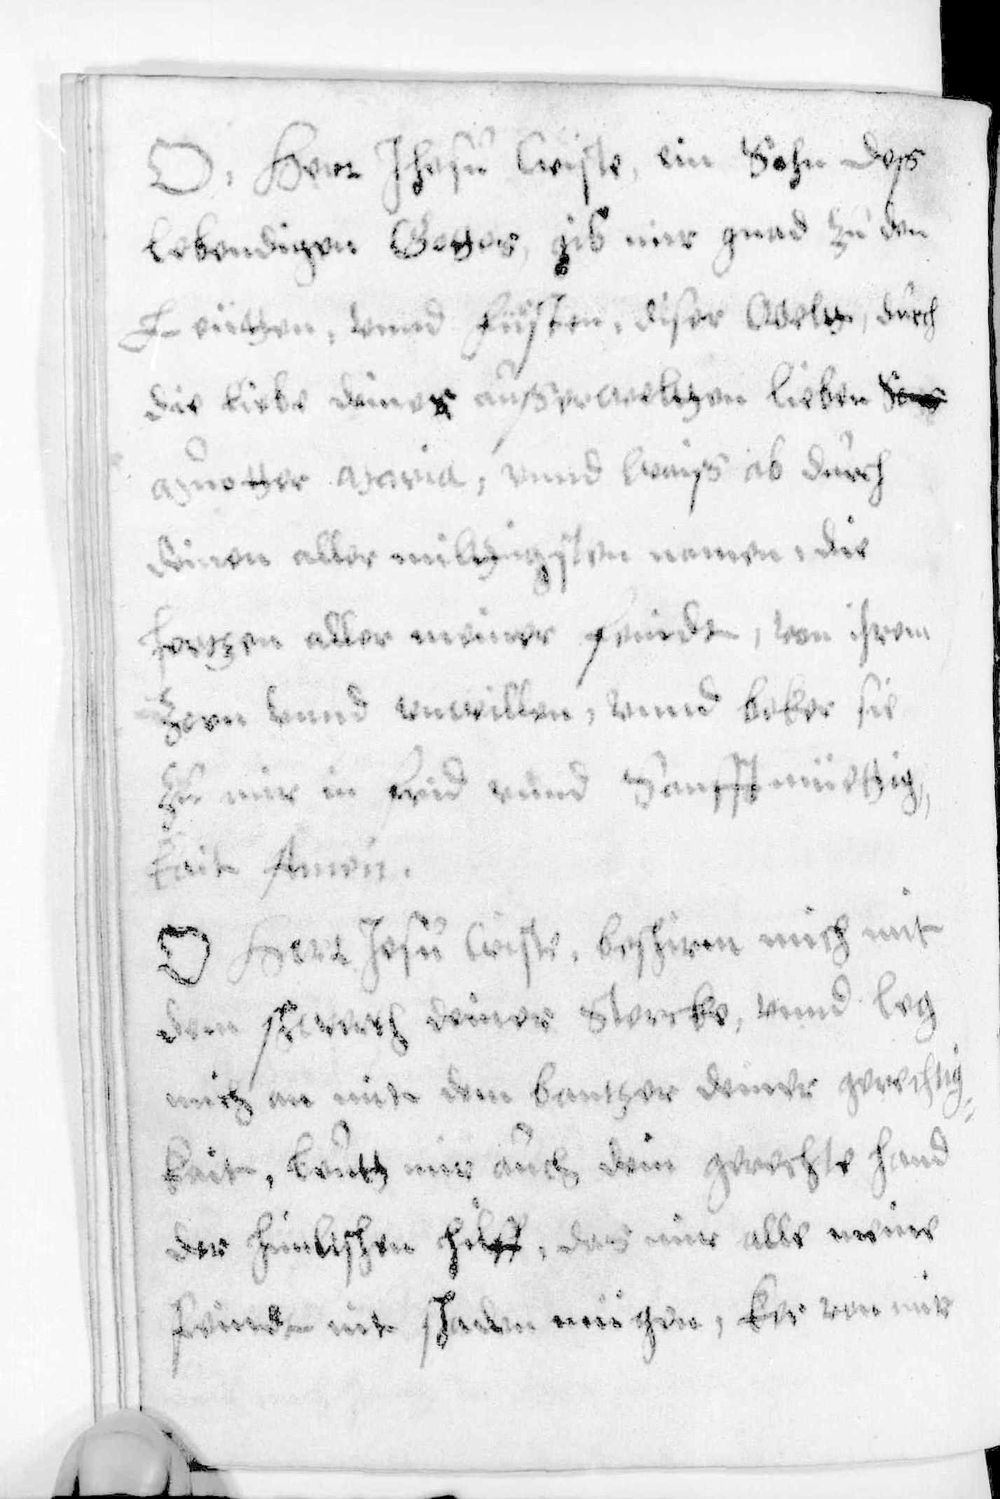 O, Herr Jhesu Criste, ein Sohn dess
lebendigen Gottes, gib mir gnad zu den
leütten, vnnd fürsten, diser Weltt, durch
die liebe deiner ausserweltten lieben
Muetter Maria, vnnd waiss ab durch
deinen aller miltigisten namen, die
hertzen aller meiner feindt, von ihrem
Zorn vnnd vnwillen, vnnd beker sie
zu mir in frid vnnd Sanfftmüettig,,
kait Amen.
O Herr Jesu Criste, beshirm mich mit
dem shwerth deiner Sterrke, vnnd leg
mich an mit dem bantzer deiner gerechtig,,
kait, beutt mir auch dein gerechte hand
der himlishen hilff, das mir alle meine
feindt nit shaden mügen, ker von mir